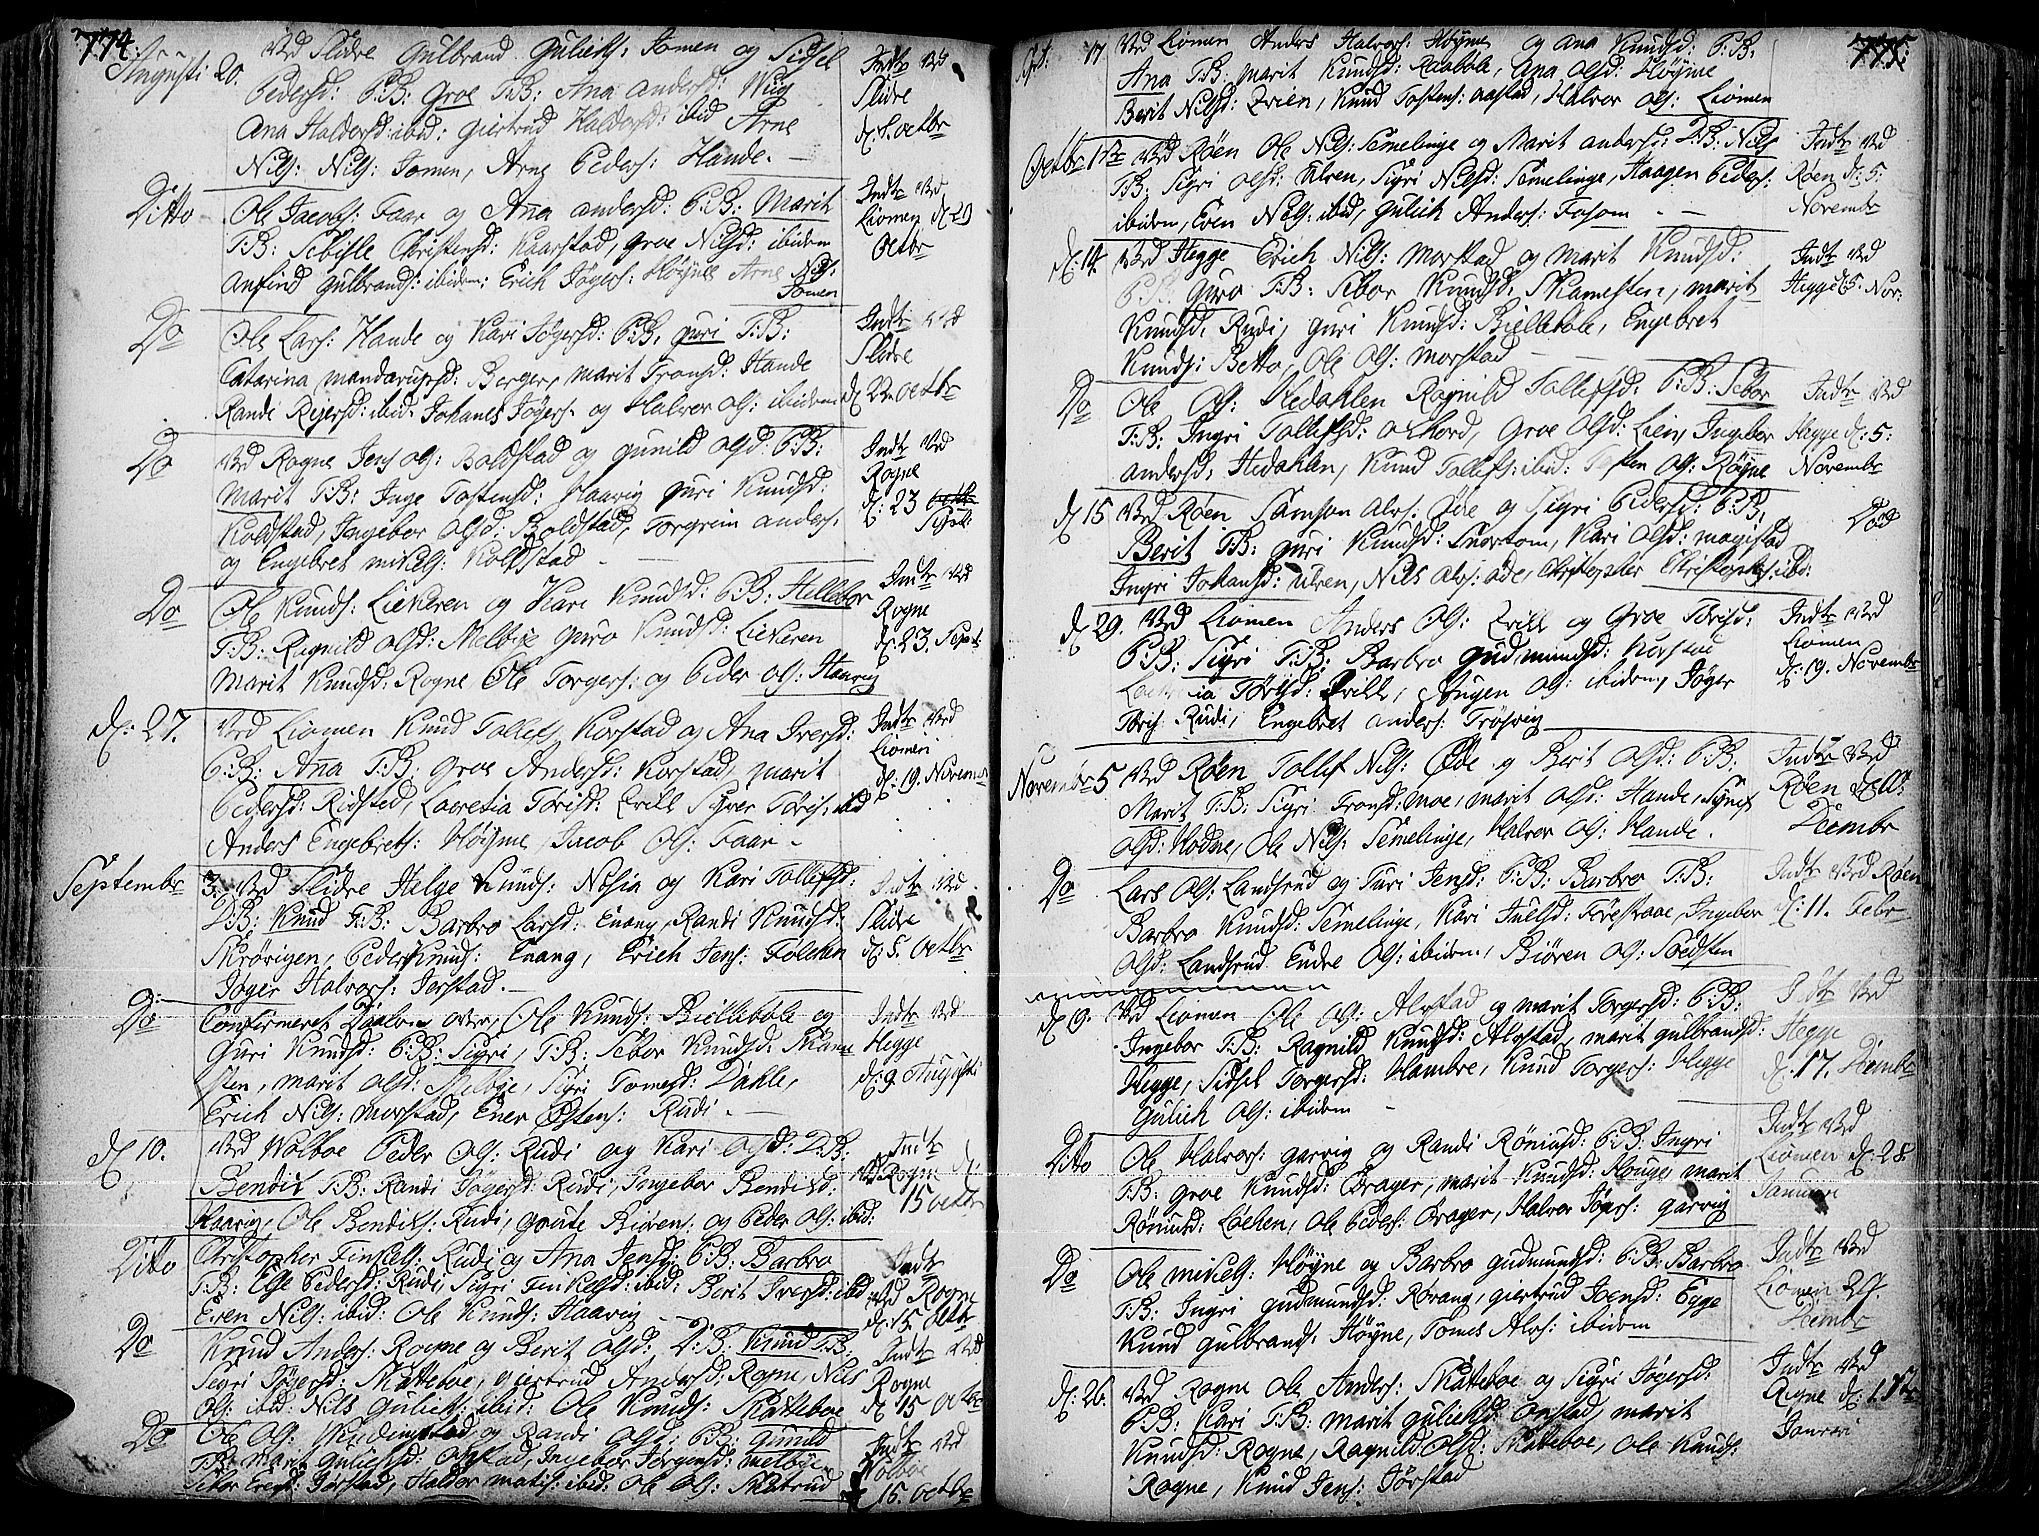 774.
Augusti 20. Ved Slidre Gulbrand Gulichs: Jomen og Sissel
Pedersd: P:B: Groe T:B: Ana Andersd: Wug
Ana Haldorsd: ibid: Giertrud Haldorsd: ibid Arne
Nils: Nils: Jomen, Arne Peders: Hande. —
Indtr Ved
Slidre
d: 8. octbr
Ditto Ole Jacobs: Faar og Ana Andersd: P:B: Marit
T:B: Sebisle Christensd: Kaarstad, Groe Nilsd: ibidem
Anfind Gulbrands: ibidem: Erich Jøgers: Høyne Arne Nils:
Jomen
Indtr Ved
Liomen d: 29
Octbr
Do Ole Lars: Hande og Kari Jøgersd: P:B: Guri T:B:
Catarina Mandarupsd: Berger, Marit Tronsd: Hande
Randi Rejersd: ibid. Johanes Jøgers: og Halvor Ols: ibidem
Indtr Ved
Slidre
d: 22 octbr
Do Ved Rogne Jens Ols: Boldstad og Gunild Olsd: P:B:
Marit T:B: Inge Tostensd: Haavig Guri Knudsd:
Koldstad, Ingebor Olsd: Boldstad, Torgrim Anders:
og Engebret Mikels: Koldstad —
Indtr Ved
Rogne
d: 23
Sept:
Do Ole Knuds: Liekeren og Kari Knudsd: P:B: Hellebor
T:B: Ragnild Olsd: Melbye Guro Knudsd: Liekeren
Marit Knudsd: Rogne, Ole Torgers: og Peder Ols: Haavig
Indtr Ved
Rogne
d: 23. Sept
d: 27. Ved Liomen Knud Tollefs: Korstad og Ana Iversd:
P:B: Ana T:B: Groe Andersd: Korstad, Marit
Pedersd: Ridsted, Lucretia Tørisd: Lvill Siver Tøris: ibid
Anders Engebrets: Høyne, Jacob Ols: Faar —
Indtr Ved
Liomen
d: 19. Novem
Septembr 3. Ved Slidre Helge Knuds: Nosia og Kari Tollefsd:
D:B: Knud T:B: Barbro Larsd: Enang, Randi Knudsd:
Skrøvigen, Peder Knuds: Enang, Erich Jens:
Jøger Halvors: Jerstad. —
Indtr Ved
Slidre
d: 5. octbr
Do Confirmeret Daaben over, Ole Knuds: Biellebole og
Guri Knudsd: P:B: Sigri, T:B: Sebor Knudsd: Skame
sten, Marit Olsd: Melbye, Sigri Tomesd: Dahle,
Erich Nils: Morstad, Ener Østens: Rudi. —
Indtr Ved
Hegge
d: 9 Augusti
d: 10. Ved Wolboe Peder Ols: Rudi og Kari Olsd: D:B:
Bendit T:B: Randi Jøgersd: Rudi, Ingebor Bendiksd:
Haavig, Ole Bendiks: Rudi, Goute Biørens: og Peder Ols: ibid:
Indtr
Ved Rogne d:
15 octbr
Ditto Christopher Finkels: Rudi og Ana Jensd: P:B: Barbro
T:B: Ege Pedersd: Rudi, Sigri Finkelsd: ibid: Berit Iversd: ibid
Even Nils: ibid: Ole Knuds: Haavig —
Indtr
Ved Rogne
d: 15 octbr
Do Knud Anders: Rogne og Berit Olsd: D:B: Knud T:B:
Sigri Jøgersd: Skatteboe, Giertrud Andersd: Rogne, Nils
Ols: ibid: Nils Gulichs: ibid: Ole Knuds: Skatteboe
Indtr Ved
Rogne
d: 15 octbr
Do Ole Ols: og Randi Olsd: P:B: Gunild
T:B: Marit Gulichsd: Ingebor Jørgensd: Melbye
Jørstad, Haldor Matis: ibid: Ole Ols: Skatrud
Indtr Ved
Wolboe
16. octbr
775.
Sept: 17 Ved Liomen Anders Halvors: Høyne og Ana Knudsd: P:B:
Ana T:B: Marit Knudsd: Raabøle, Ana Olsd: Høyne
Berit Nilsd: Qvien, Knud Tostens: Aastad, Halvor Ols: Liomen
Octbr 1ste Ved Røen Ole Nils: Semelinge og Marit Andersd: D:B: Nils
T:B: Sigri Olsd: Ulven, Sigri Nilsd: Semelinge, Haagen Peders:
ibidem, Even Nils: ibid, Gulich Anders: Fosom —
Indtr Ved
Røen d: 5:
Novembr
d: 14. Ved Hegge Erich Nils: Morstad og Marit Knudsd:
P:B: Guro T:B: Sebor Knudsd: Skamesten, Marit
Knudsd: Rudi, Guri Knudsd: Biellebole, Engebret
Knuds: Betto, Ole Ols: Morstad —
Indtr Ved
Hegge d: 5. Nov:
Do Ole Ols: Hedahlen Ragnild Tollefsd: P:B: Sebor
T:B: Ingri Tollefsd: Groe Olsd: Lien, Ingebor
Andersd: Hedahlen, Knud Tollefs: ibid: Ols: Røgne
Indtr Ved
Hegge d: 5:
Novembr
d: 15 Ved Røen, Samson Alvs: Øde og Sigri Pedersd: P:B:
Berit T:B: Guri Knudsd: Snortom, Kari Olsd: Magistad
Ingri Johansd: Ulven, Nils Alvs: Øde, Christopher Christophs: ibid:
Død
d: 29. Ved Liomen Anders Ols: Qvill og Groe Tørisd:
P:B: Sigri T:B: Barbro Gudmundsd: Korstad
Tørisd: Qvill, Augen Ols: ibidem, Jøger
Tøris: Rudi, Engebret Anders: Trøsvig
Indtr Ved
Liomen
d: 19. Novembr
Novembr 5 Ved Røen Tollef Nils: Øde og Berit Olsd: P:B:
Marit T:B: Sigri Tronsd: Moe, Marit Olsd: Hande, Synev
Olsd: Hodne, Ole Nils: Semelinge, Halvor Ols: Hande.
Indtr Ved
Røen d: 10:
Decembr
Do Lars Ols: Landsrud og Turi Jensd: P:B: Barbro T:B:
Barbro Knudsd: Semelinge, Kari Juelsd: Førestraae, Ingebor
Olsd: Landsrud Endre Ols: ibidem, Biøren Ols: Soedsten
Indtr Ved Røen
d: 11. Febr
d: 9. Ved Liomen Ole Ols: Alvstad og Marit Torgersd: P:B:
Ingebor T:B: Ragnild Knudsd: Alvstad, Marit Gulbrandsd:
Hegge, Sidsel Torgersd: Hambre, Knud Torgers: Hegge
Gulich Ols: ibidem —
Indtr Ved
Hegge
d: 17. Decembr
Ditto Ole Halvors: Garvig og Randi Rømundsd: P:B: Ingri
T:B: Groe Knudsd: Qrager, Marit Knudsd: Houge, Marit
Rømundsd: Løchen, Ole Peders: Qrager, Halvor Jøgers: Garvig
Indtr Ved
Liomen d: 28.
Januari
Do Ole Mikels: Høyne og Barbro Gudmundsd: P:B: Barbro
T:B: Ingri Gudmundsd: Rørang, Giertrud Joensd: Egge
Knud Gulbrands: Høyne, Tomes Alvs: ibidem
Indtr Ved
Liomen 27.
Decembr
d: 26. Ved Rogne Ole Anders: Skatteboe og Sigri Jøgersd:
P:B: Kari T:B: Marit Gulichsd: Onstad, Marit
Knudsd: Rogne, Ragnild Olsd: Skatteboe, Ole Knuds:
Rogne, Knud Jens: Jørstad
Indtr Ved
Rogne d: 1ste
Januari